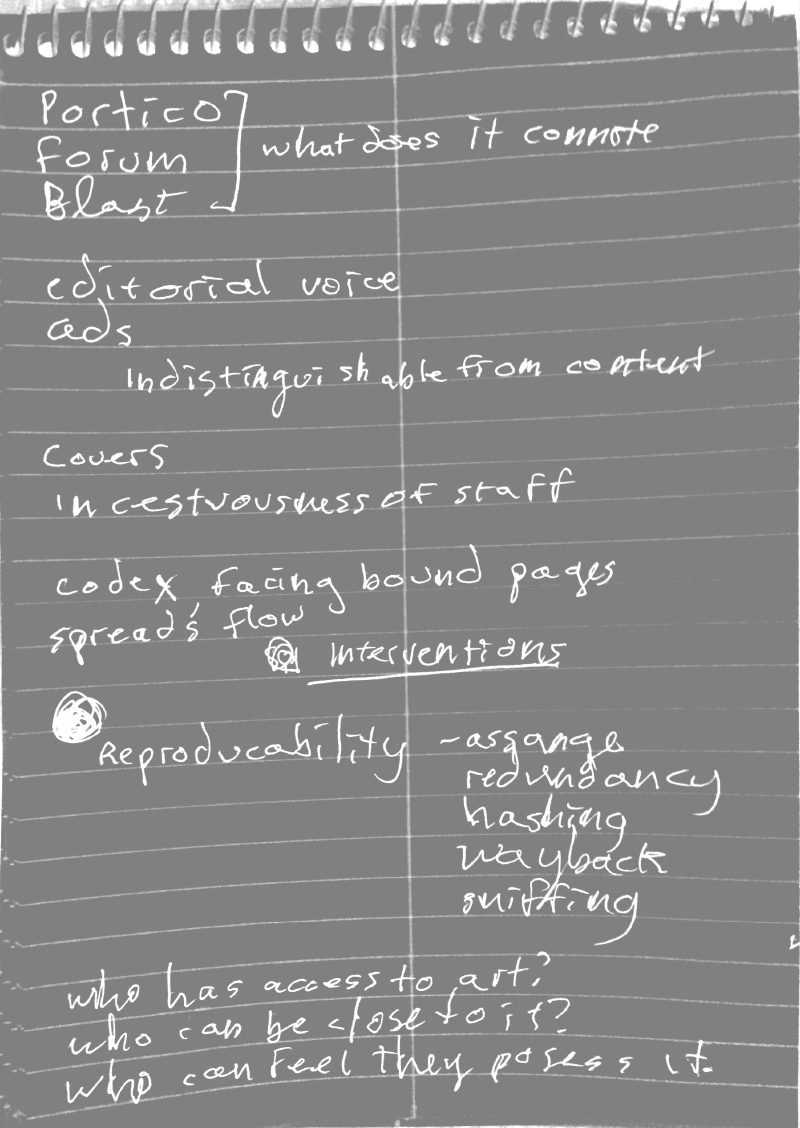 Portico
Forum
Blast
what does it connote
editorial voice
ads
Indistinguishable from content
Covers
Incestuousness of staff
codex, facing bound pages
spreads flow
Interventions
Reproducability - assange
redundancy
hashing
wayback
sniffing
who has access to art?
who can be close to it?
who can feel they posess it.